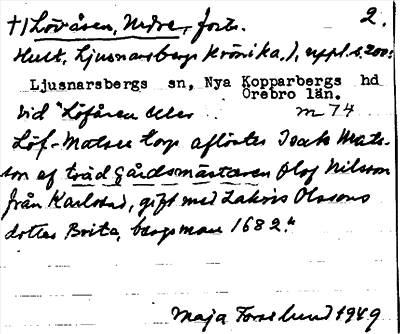 †) Lövåsen, Nedre, forts. 2.
Hult, Ljusnarsbergs Krönika, I, uppl. s. 200:
Ljusnarsbergs sn, Nya Kopparbergs hd
Örebro län.
Vid "Löfåsen eller m 74
Löf-Matses torp aflöstes Isak Mats-
son af trädgårdsmästaren Olof Nilsson
från Karlstad, gift med Zakris Olssons
dotter Brita, bergsman 1682."
Maja Forslund 1949